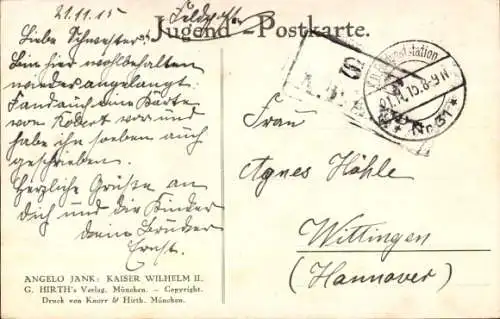 21.11.15
Feldpost
Jugend-Postkarte.
Liebe Schwester!
Bin hier wohlbehalten
wieder angelangt.
Fand auch eine Karte
von Robert vor und
habe ihn soeben auch
geschrieben.
Herzliche Grüße an
dich und die Kinder
dein Bruder
Ernst.
ANGELO JANK: KAISER WILHELM II.
G. HIRTH's Verlag, München. – Copyright.
Druck von Knorr & Hirth, München.
21.11.15. 8-9 N
* No. 31 *
Frau
Agnes Höhle
Wittingen
(Hannover)